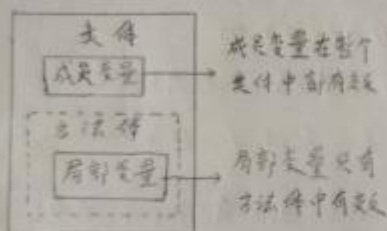 类体
成员变量
成员变量在整个
类体中都有效
方法体
局部变量
局部变量只有
方法体中有效